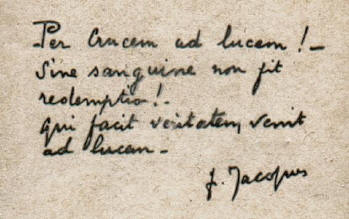 Per Crucem ad lucem ! _
Sine sanguine non fit
redemptio ! _
Qui facit veritatem, venit
ad lucem _
f. Jacques